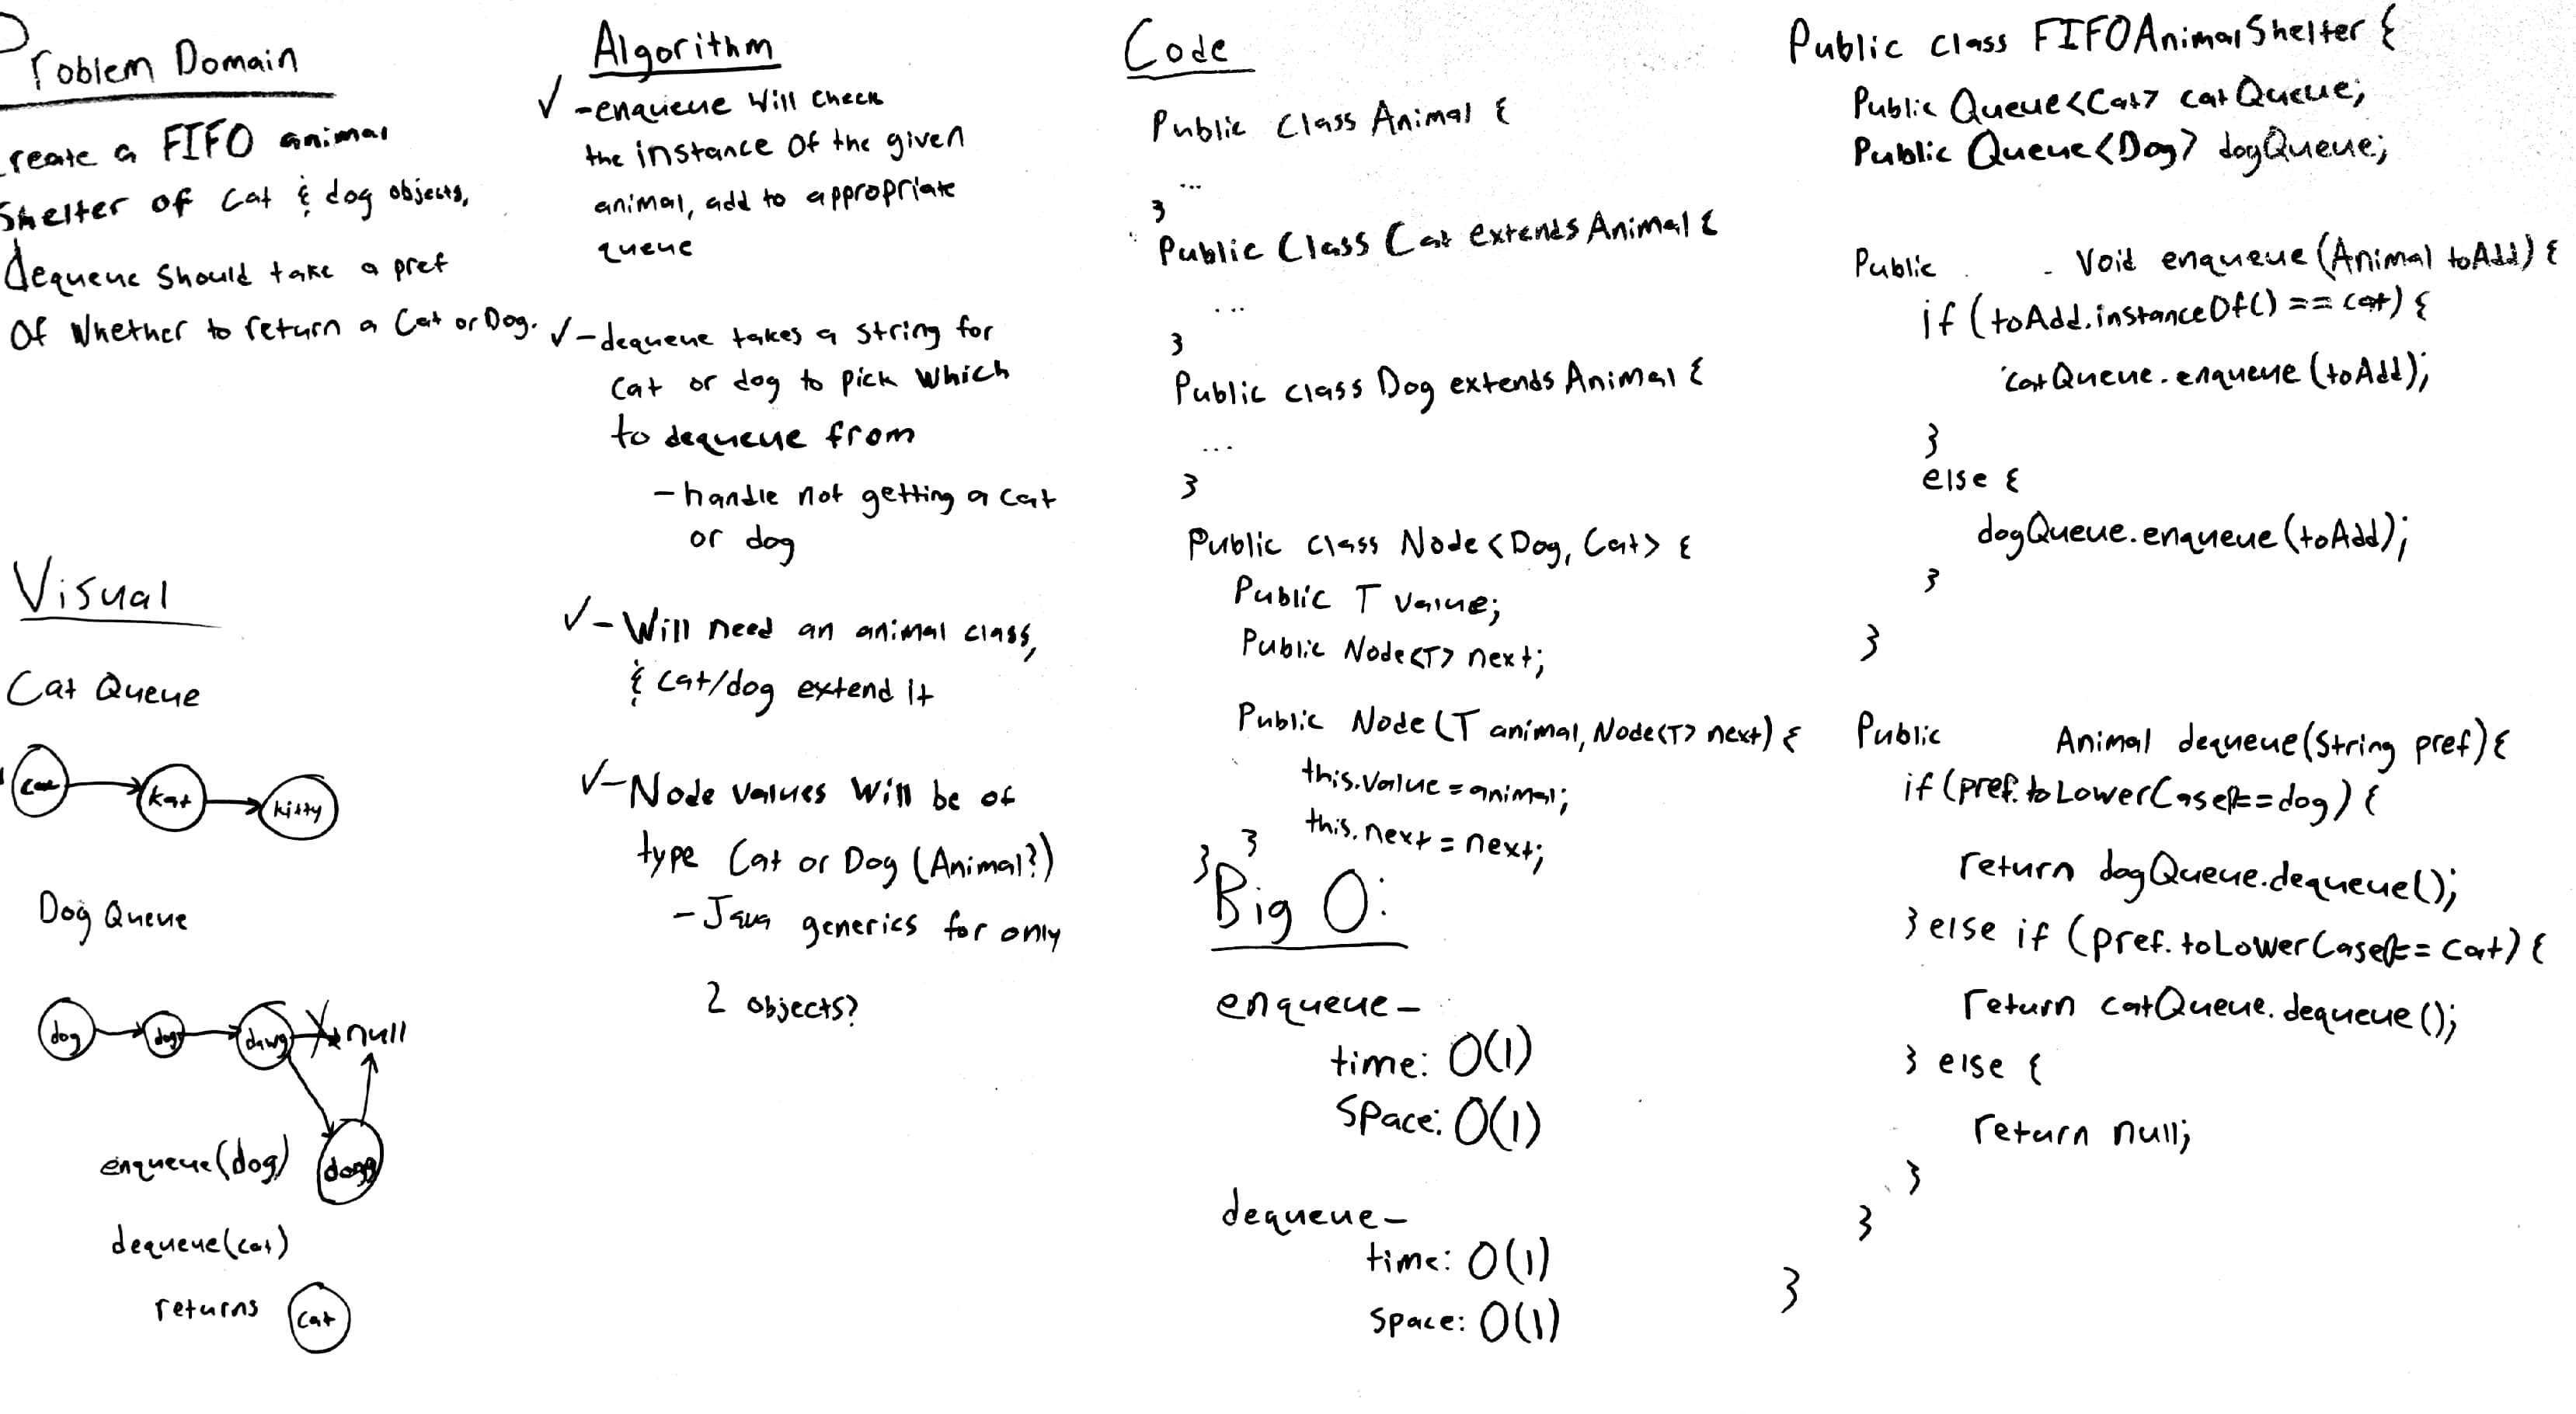 Problem Domain
Create a FIFO animal
Shelter of Cat & dog objects,
dequeue Should take a pref
Of Whether to return a Cat or Dog.
Visual
Cat Queue
cat
kat
kitty
Dog Queue
dog
dawg
null
enqueue(dog)
dogg
dequeue(cat)
returns
cat
Algorithm
✓ -enqueue Will Check
the instance of the given
animal, add to appropriate
queue
✓ -dequeue takes a string for
Cat or dog to pick Which
to dequeue from
-handle not getting a cat
or dog
✓ -Will need an animal class,
& cat/dog extend it
✓ -Node values Will be of
type Cat or Dog (Animal?)
-Java generics for only
2 objects?
Code
Public Class Animal {
...
}
Public Class Cat extends Animal {
...
}
Public class Dog extends Animal {
...
}
Public class Node <Dog, Cat> {
Public T value;
Public Node<T> next;
Public Node (T animal, Node<T> next) {
this.value = animal;
this.next = next;
}
}
Big O:
enqueue-
time: O(1)
Space: O(1)
dequeue-
time: O(1)
Space: O(1)
Public class FIFOAnimalShelter {
Public Queue<Cat> catQueue;
Public Queue<Dog> dogQueue;
Public Void enqueue (Animal toAdd) {
if (toAdd.instanceOf() == cat) {
catQueue.enqueue (toAdd);
}
else {
dogQueue.enqueue (toAdd);
}
}
Public Animal dequeue(String pref) {
if (pref.toLowerCase()==dog) {
return dogQueue.dequeue();
} else if (pref.toLowerCase()== cat) {
return catQueue.dequeue();
} else {
return null;
}
}
}